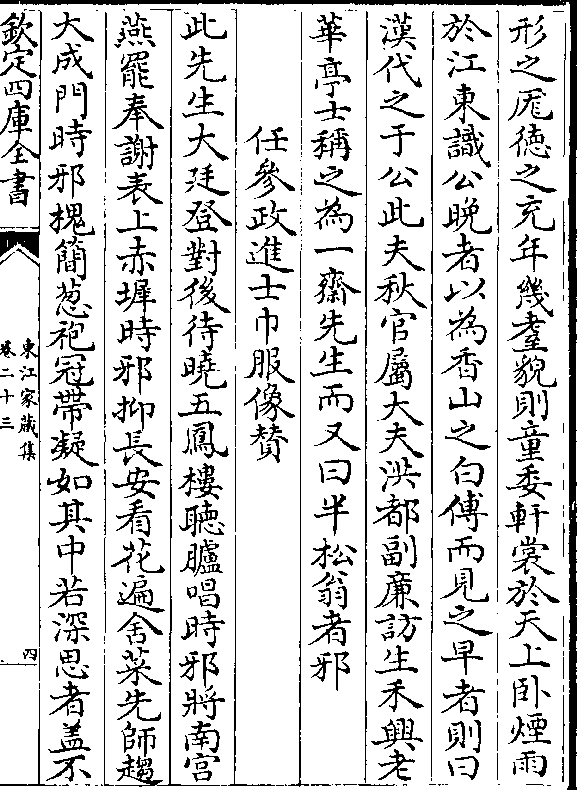 形之厖德之充年幾耋貌則童委軒裳於天上卧煙雨
於江東識公晚者以為香山之白傅而見之早者則曰
漢代之于公此夫秋官屬大夫洪都副廉訪生禾興老
華亭士稱之為一齋先生而又曰半松翁者邪
任參政進士巾服像贊
此先生大廷登對後待曉五鳳樓聽臚唱時邪將南宮
燕罷奉謝表上赤墀時邪抑長安看花遍舍菜先師趨
大成門時邪槐簡葱袍冠帶凝如其中若深思者盖不
欽定四庫全書
東江家藏集
卷二十三
四